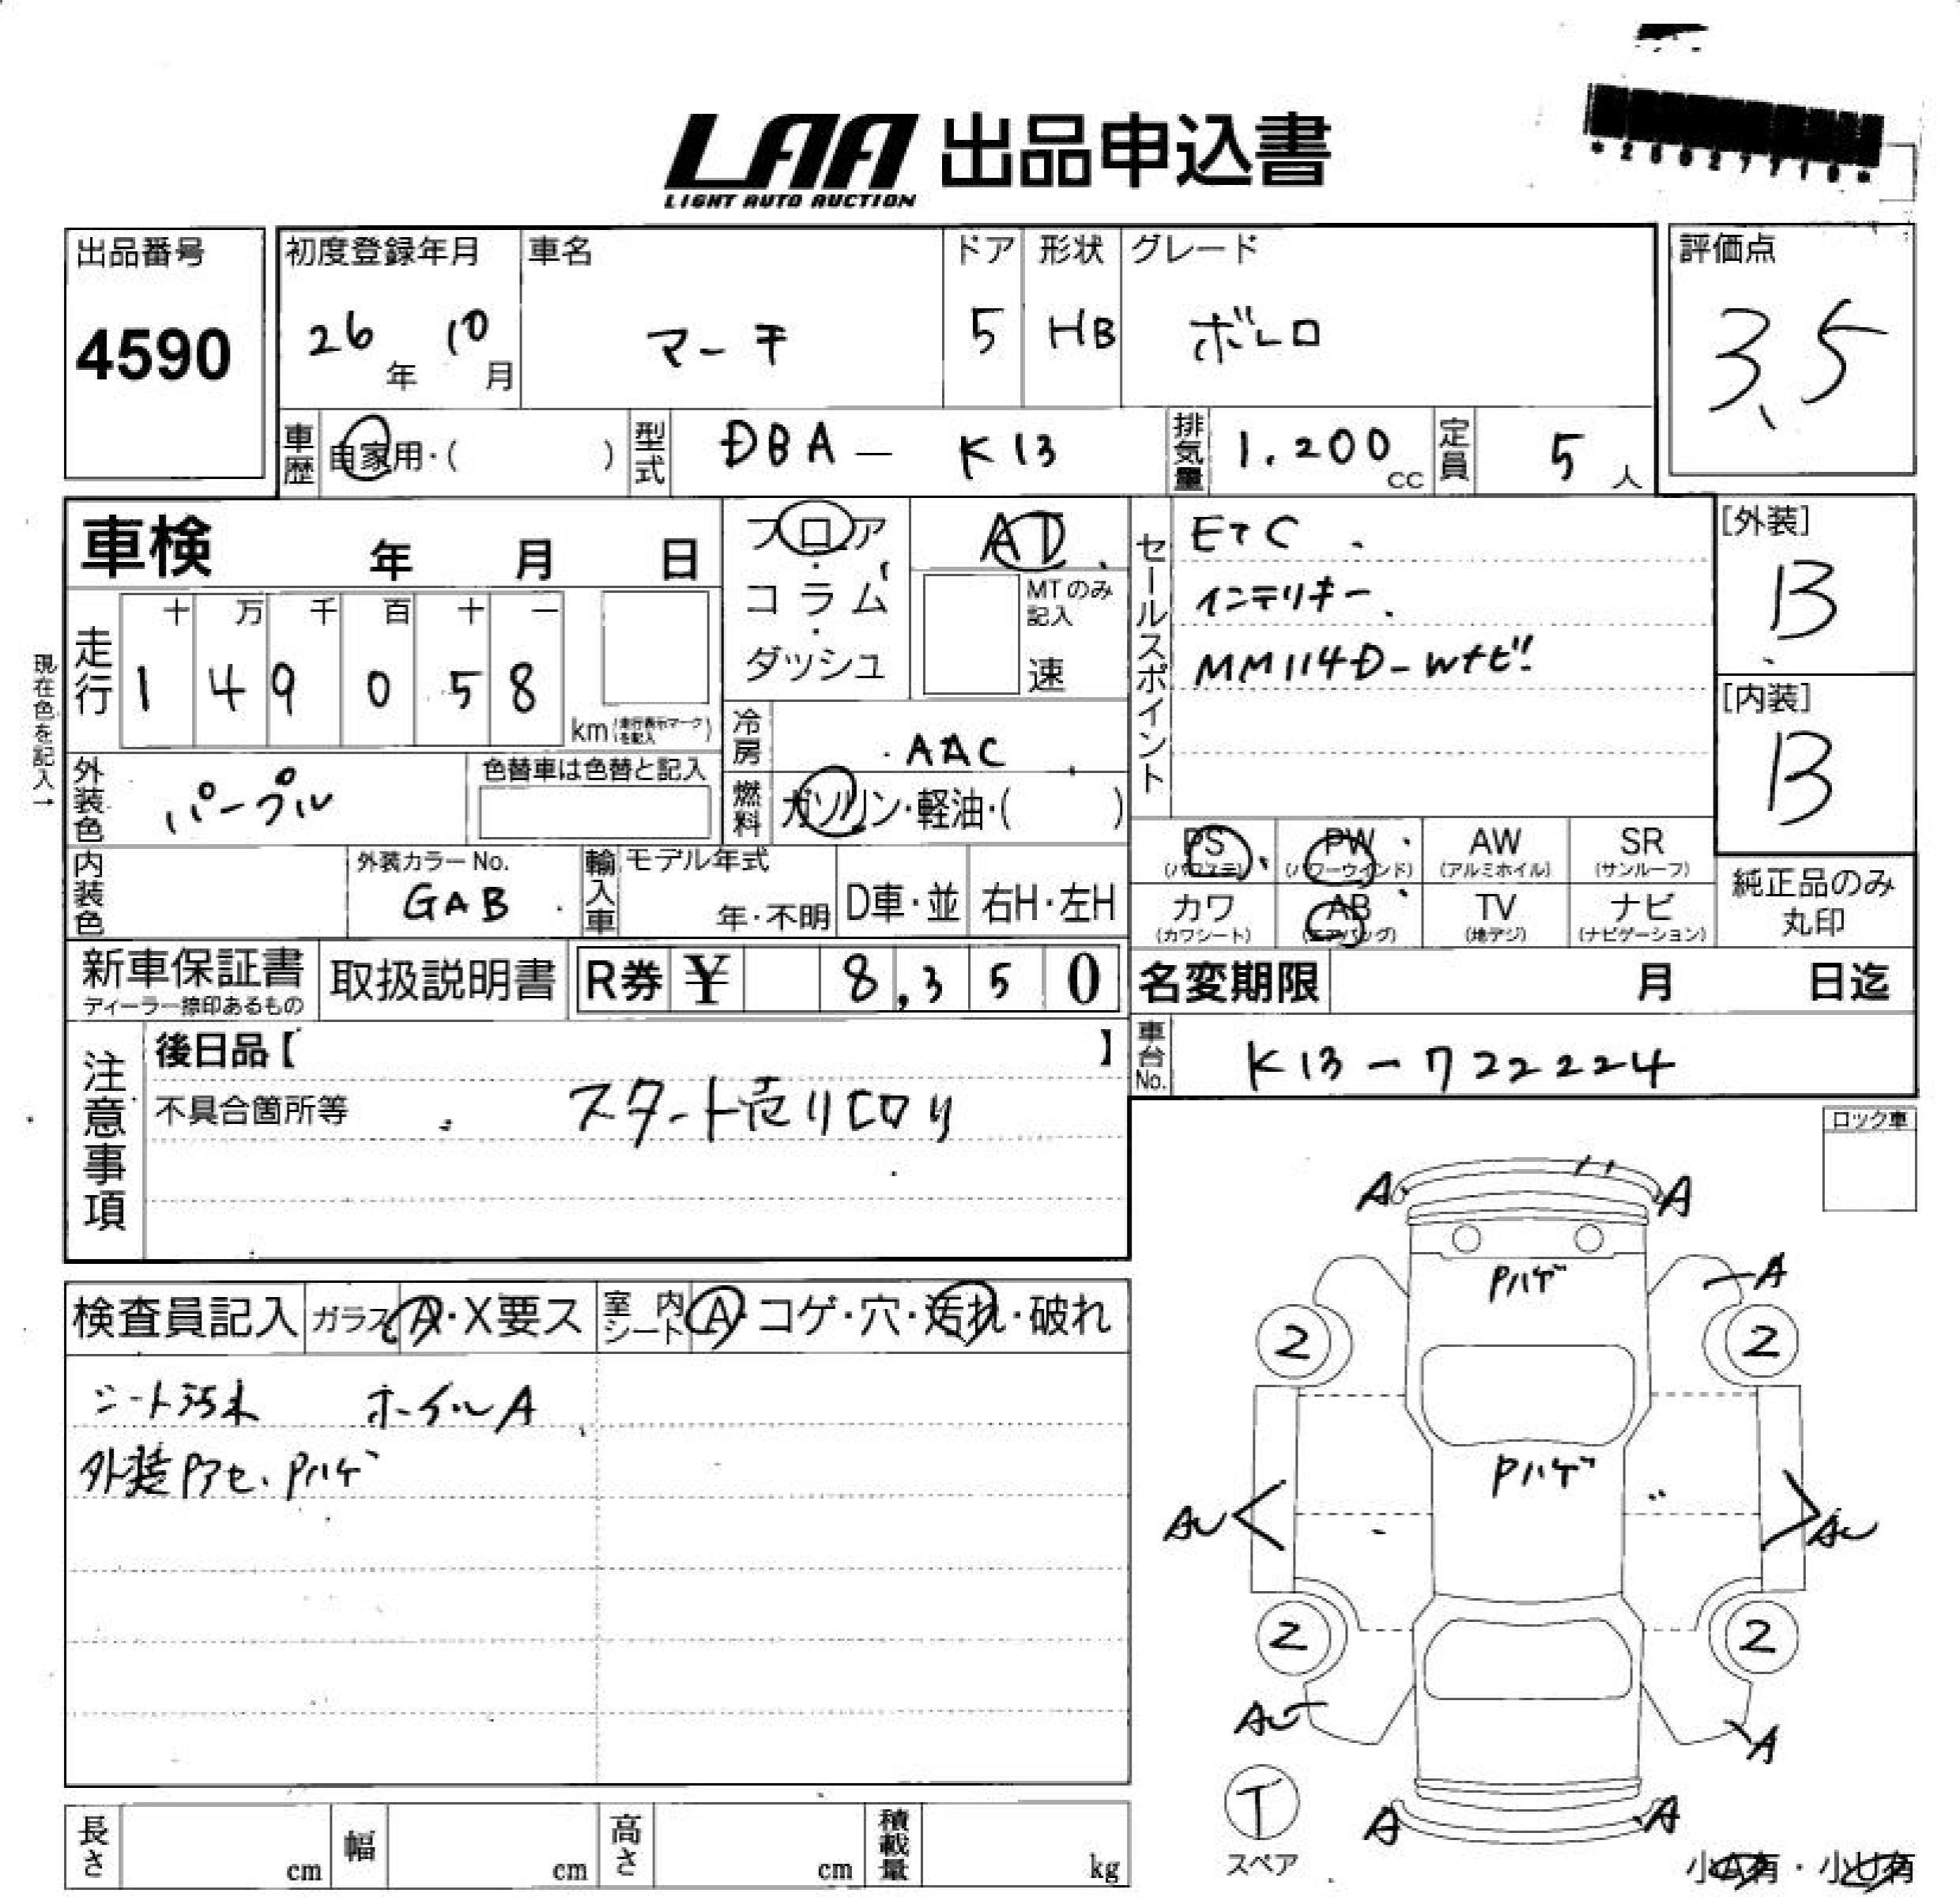 LAA 出品申込書
LIGHT AUTO AUCTION
出品番号
4590
初度登録年月
26年 10月
車名
マーチ
ドア
5
形状
HB
グレード
ボレロ
評価点
3.5
車歴 自家用・( )
型式 DBA - K13
排気量 1.200 cc
定員 5 人
車検 年 月 日
フロア・コラム・ダッシュ
AT
MTのみ記入
速
セールスポイント
ETC
インテリキー
MM114D-Wナビ!!
[外装]
B
[内装]
B
現在色を記入→
走行
十 万 千 百 十 一
1 4 9 0 5 8
km (走行表示マークを記入)
冷房 AAC
燃料 ガソリン・軽油・( )
外装色 パープル
色替車は色替と記入
内装色
外装カラーNo.
GAB
輸入車
モデル年式
年・不明
D車・並
右H・左H
PS
(パワステ)
PW
(パワーウインド)
AW
(アルミホイル)
SR
(サンルーフ)
カワ
(カワシート)
AB
(エアバッグ)
TV
(地デジ)
ナビ
(ナビゲーション)
純正品のみ
丸印
新車保証書
ディーラー捺印あるもの
取扱説明書
R券 ¥ 8,350
名変期限 月 日迄
車台No. K13-722224
注意事項
後日品【 】
不具合箇所等
スタート売り切り
ロック車
検査員記入
ガラス A・X要ス
室内シート A・コゲ・穴・汚れ・破れ
シート汚れ ホイルA
外装Pアセ、Pハゲ
A A
Pハゲ
A
2 2
Pハゲ
AU AU
2 2
AU A
T
スペア
A A
小A有・小U有
長さ cm
幅 cm
高さ cm
積載量 kg